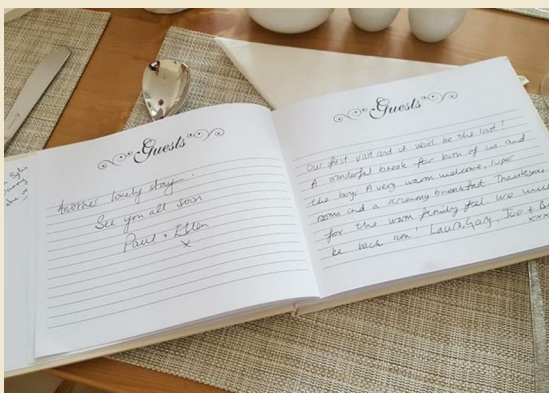 Guests
Another lovely stay...
See you all soon
Paul + Ellen
x
Guests
Our first visit and it won't be the last!
A wonderful break for both of us and
the boys. A very warm welcome, super
rooms and a scrummy breakfast. Thankyou
for the warm family feel. We will
be back soon! Laura, Gary, Joe +
xxxx